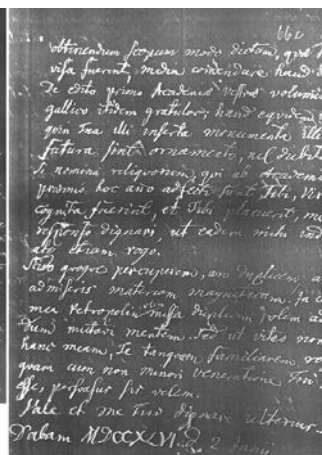 66c
obtinendum scopum modo dictam, quæ
visa fuerint, media comendare haud
De edito primo Academiæ Vestræ volumine
gallico itidem gratulor; haud equidem
quin Tua illi inserta monumenta illi
futura sint ornamento, nec dubito
Si nomina reliquorum, qui ab Academ
præmio hoc anno adfecti sunt, Tibi, Vir
cognita fuerint, et Tibi placuerit, me
responso dignari, ut eadem mihi ind
etiam rogo.
percuperem, an duplicem
admiseris materiam magneticam. In
mea Petropolin missa duplicem
mutavi mentem. Sed ut vites
hanc meam, Te tanquam familiarem
quam cum non minori veneratione Tui
esse persuasus sis velim.
Vale et me Tuis dignare ulterius
Dabam MDCCXLVI. 2 Junii